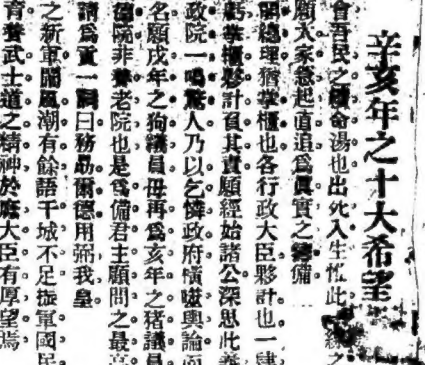 辛亥年之十大希望
會吾民之續命湯也出死入生惟此
願大家急起直追為真實之籌備
閣總理猶掌櫃也各行政大臣夥計也一肆
虧掌櫃夥計負其責願經始諸公深思此義
政院一鳴驚人乃以乞憐政府橫遭輿論
名願戌年之狗議員毋再為亥年之猪議員
院非養老院也是為備君主顧問之最高
請為貢一詞曰務勗爾德用弼我皇
之新軍鬧風潮有餘語干城不足振軍國民
育養武士道之精神於廕大臣有厚望焉